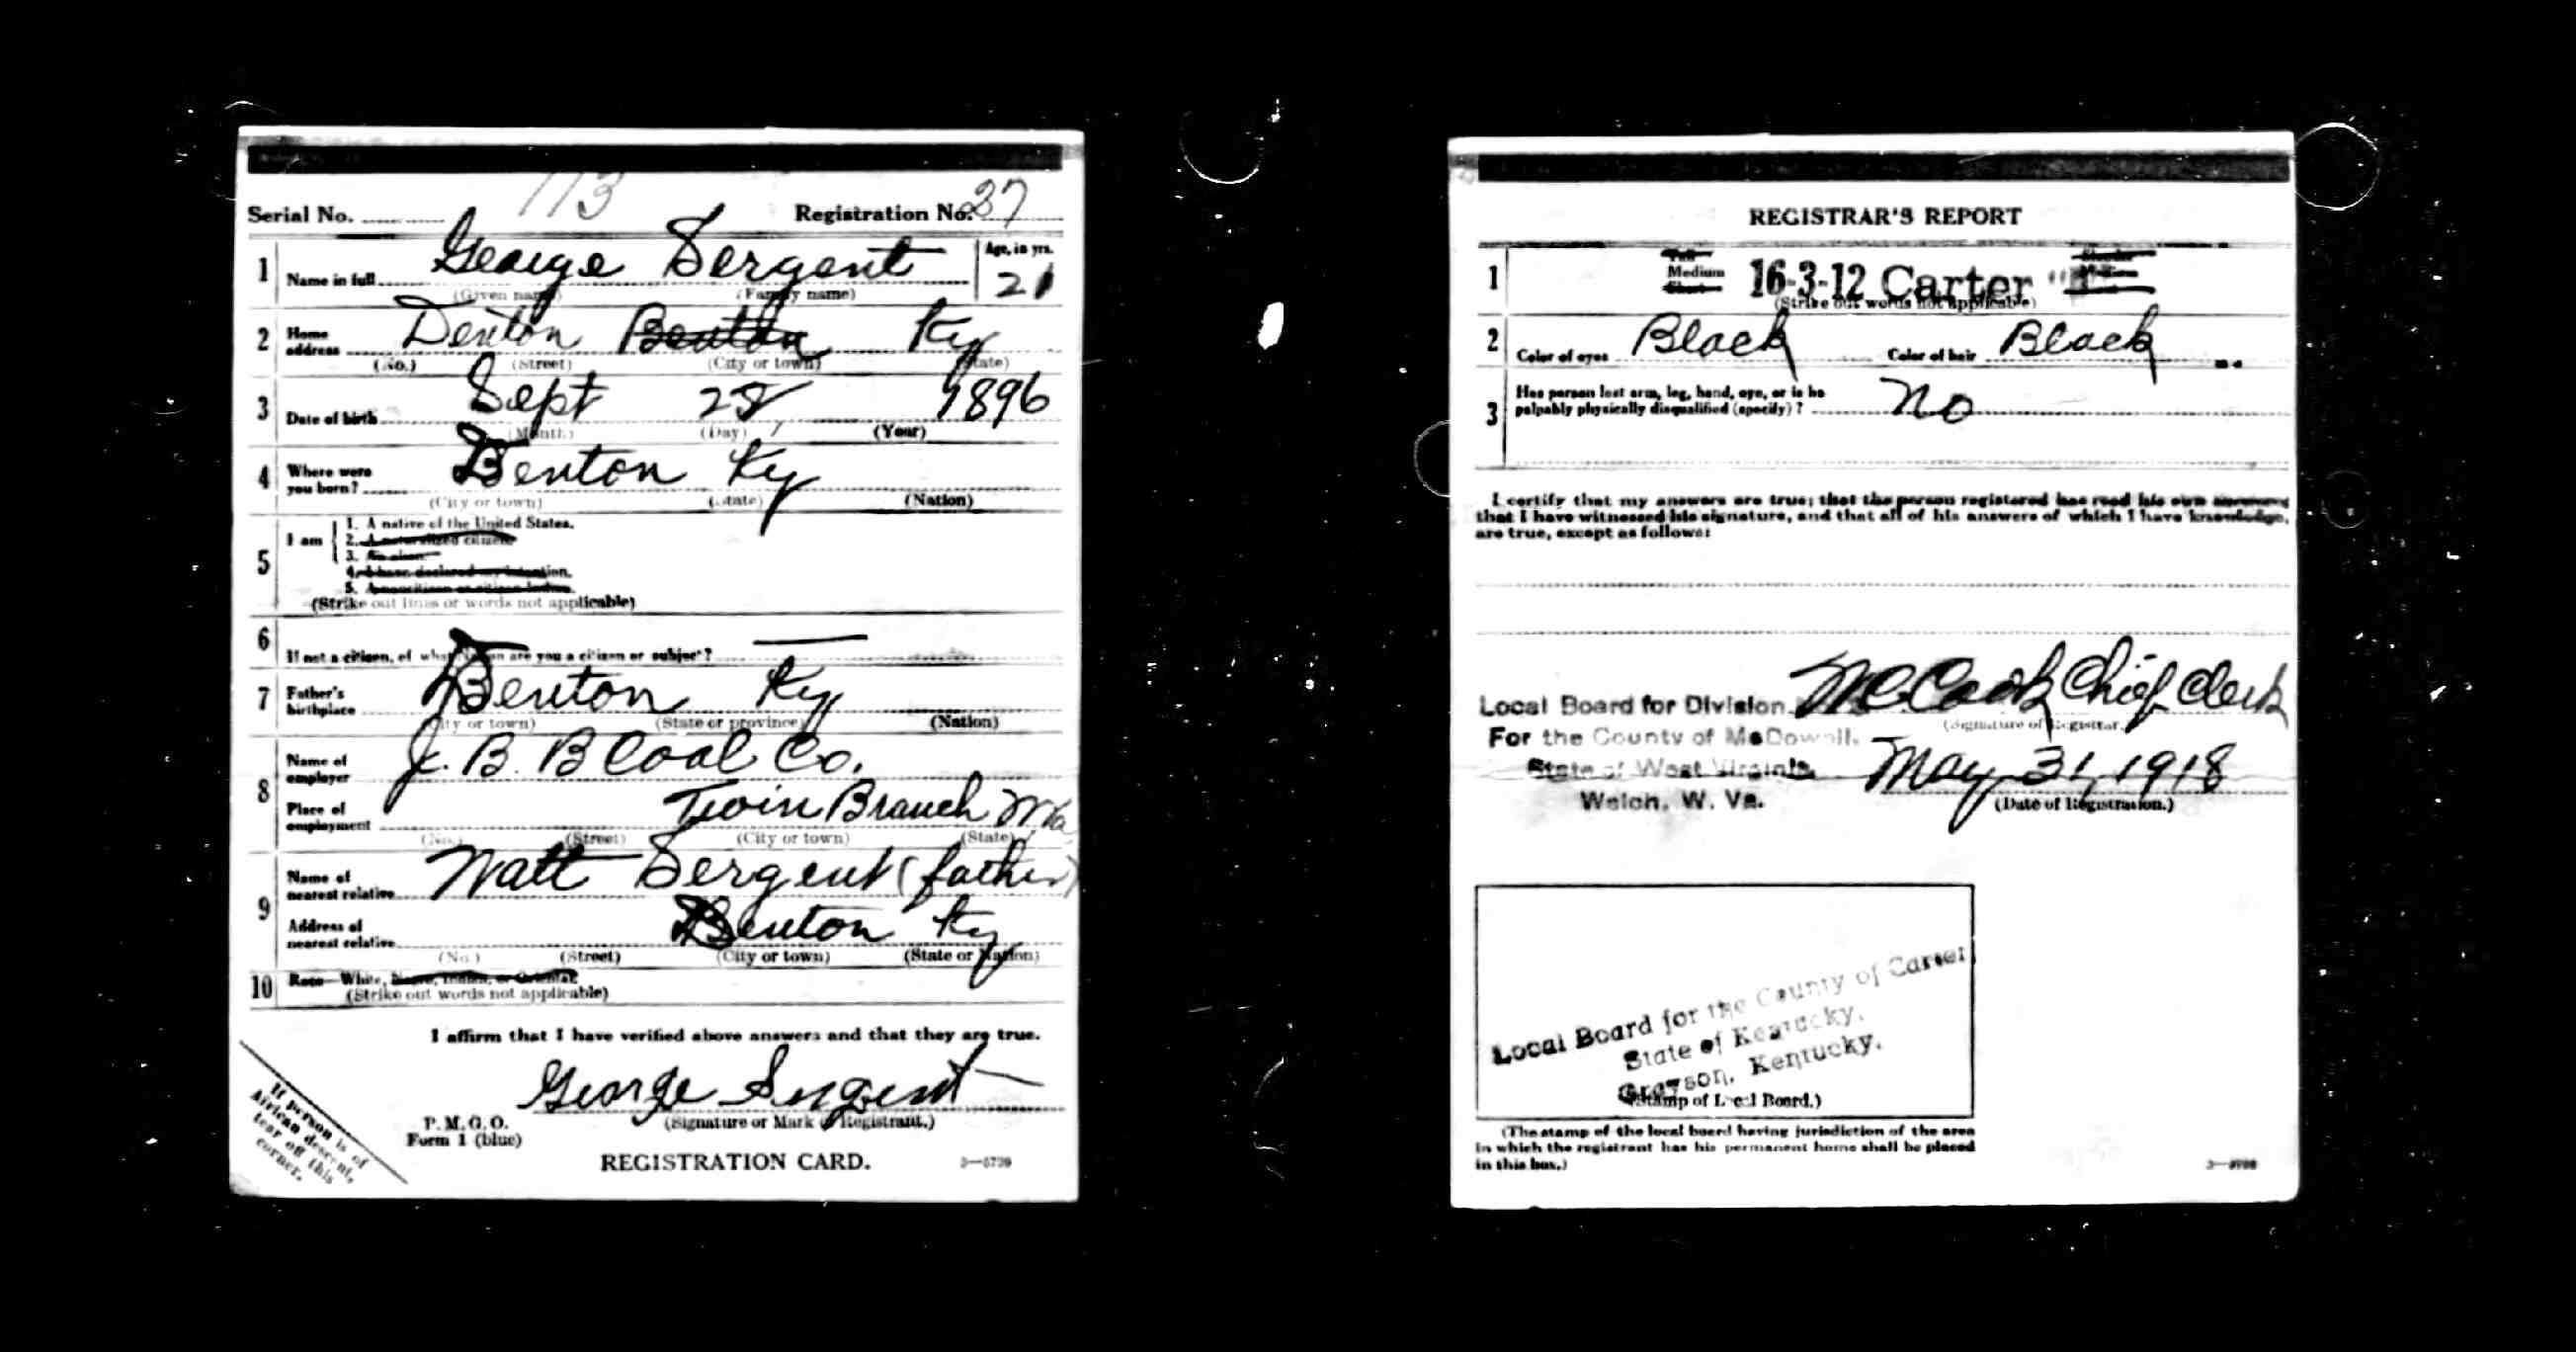 Serial No. 113 Registration No. 37
1 Name in full George Sergent Age, in yrs. 21
(Given name) (Family name)
2 Home address Denton Benton Ky
(No.) (Street) (City or town) (State)
3 Date of birth Sept 28 1896
(Month) (Day) (Year)
4 Where were you born? Denton Ky
(City or town) (State) (Nation)
5 I am
1. A native of the United States.
2. A naturalized citizen.
3. An alien.
4. I have declared my intention.
5. A noncitizen or citizen Indian.
(Strike out lines or words not applicable)
6 If not a citizen, of what Nation are you a citizen or subject? —
7 Father's birthplace Denton Ky
(City or town) (State or province) (Nation)
8 Name of employer J. B. B Coal Co.
Place of employment Twin Branch W Va
(No.) (Street) (City or town) (State)
9 Name of nearest relative Watt Sergent (father)
Address of nearest relative Denton Ky
(No.) (Street) (City or town) (State or Nation)
10 Race—White, Negro, Indian, or Oriental.
(Strike out words not applicable)
I affirm that I have verified above answers and that they are true.
George Sergent
(Signature or Mark of Registrant.)
P. M. G. O.
Form 1 (blue)
REGISTRATION CARD.
If person is of
African descent,
tear off this
corner.
REGISTRAR'S REPORT
1 Tall Medium Short 16-3-12 Carter Slender Medium
(Strike out words not applicable)
2 Color of eyes Black Color of hair Black
3 Has person lost arm, leg, hand, eye, or is he
palpably physically disqualified (specify)? No
I certify that my answers are true; that the person registered has read his own answers
that I have witnessed his signature, and that all of his answers of which I have knowledge,
are true, except as follows:
Cook Chief Clerk
(Signature of Registrar.)
Local Board for Division
For the County of McDowell,
State of West Virginia,
Welch, W. Va.
May 31, 1918
(Date of Registration.)
Local Board for the County of Carter
State of Kentucky,
Grayson, Kentucky.
(Stamp of Local Board.)
(The stamp of the local board having jurisdiction of the area
in which the registrant has his permanent home shall be placed
in this box.)